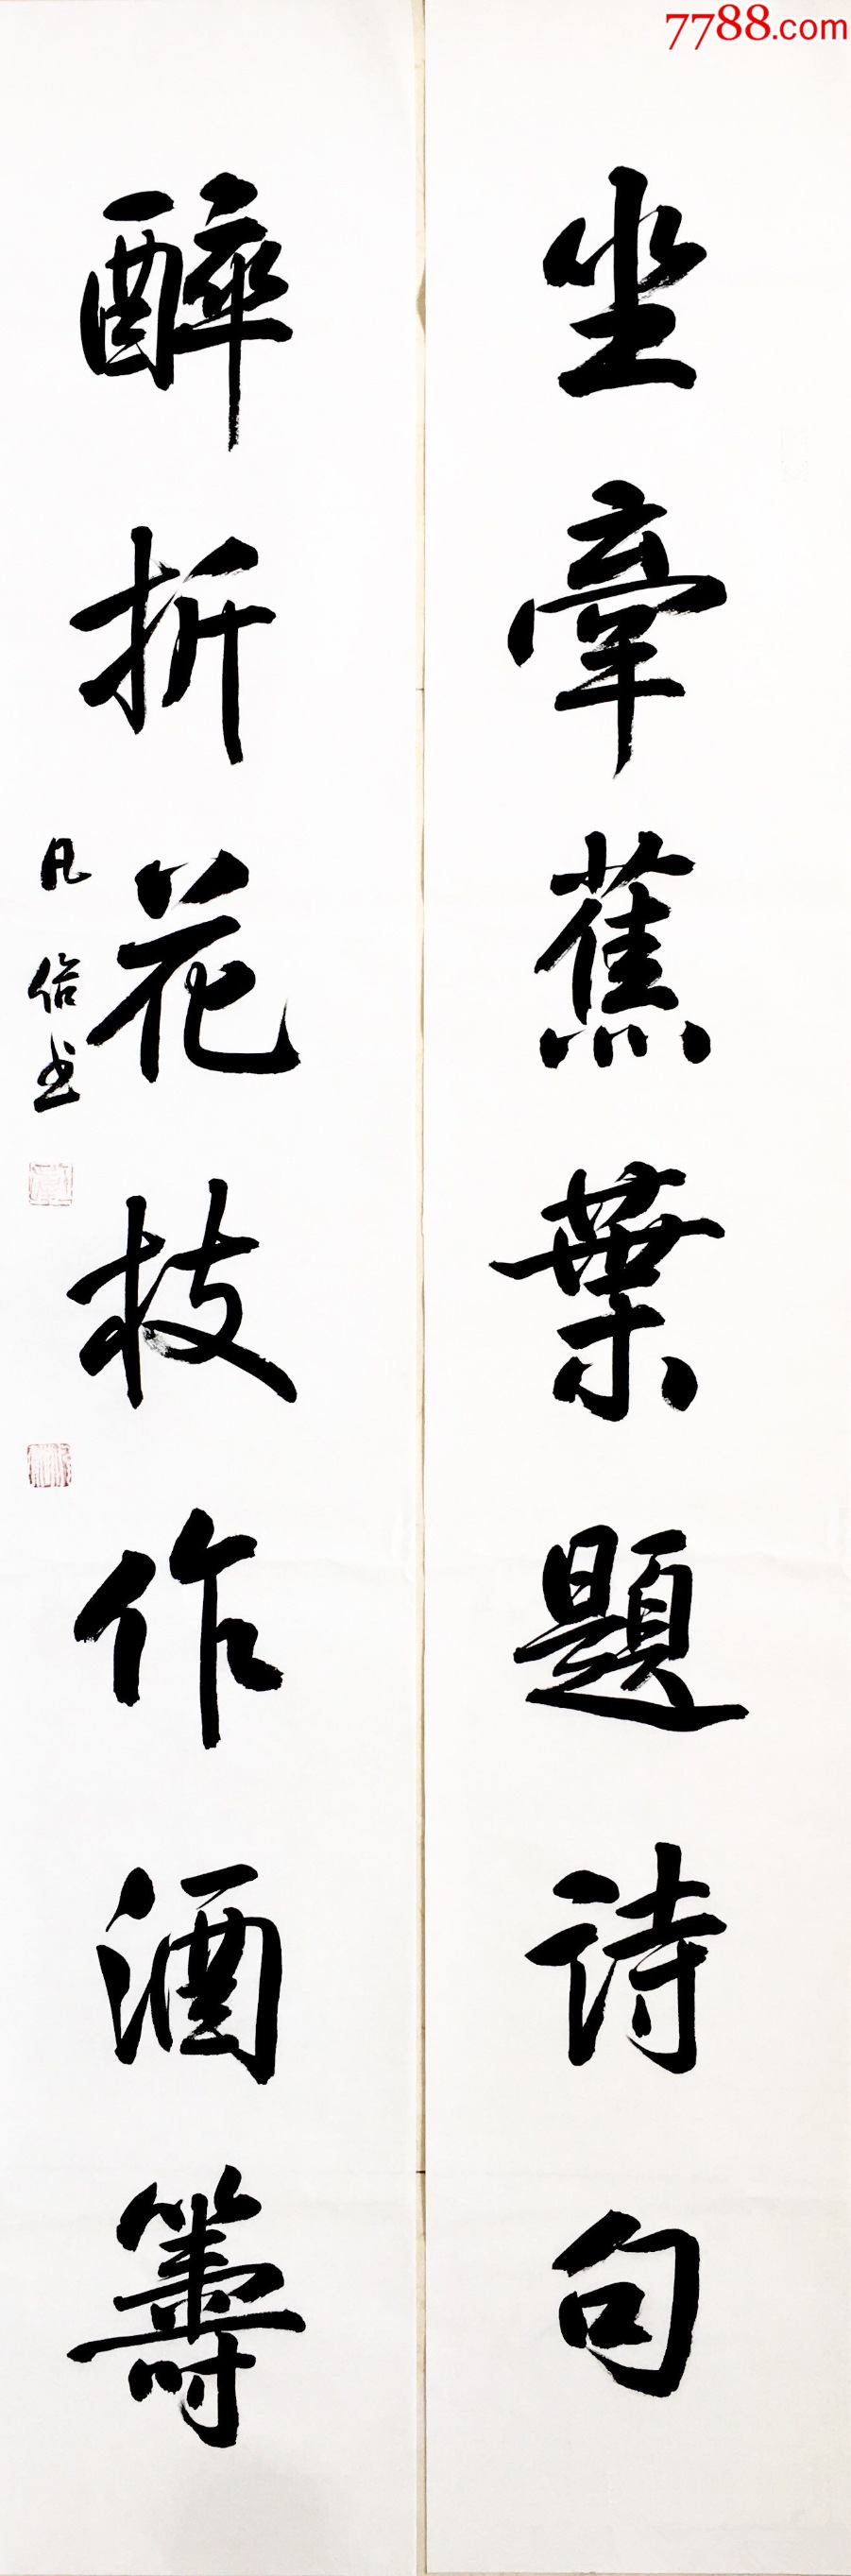 7788.com
坐牽蕉葉題诗句
醉折花枝作酒籌
凡信书